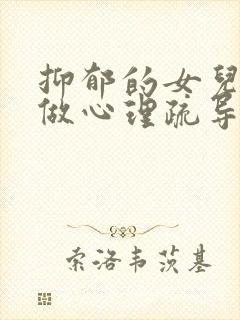 抑郁的女兒
做心理疏导
索洛韦茨基